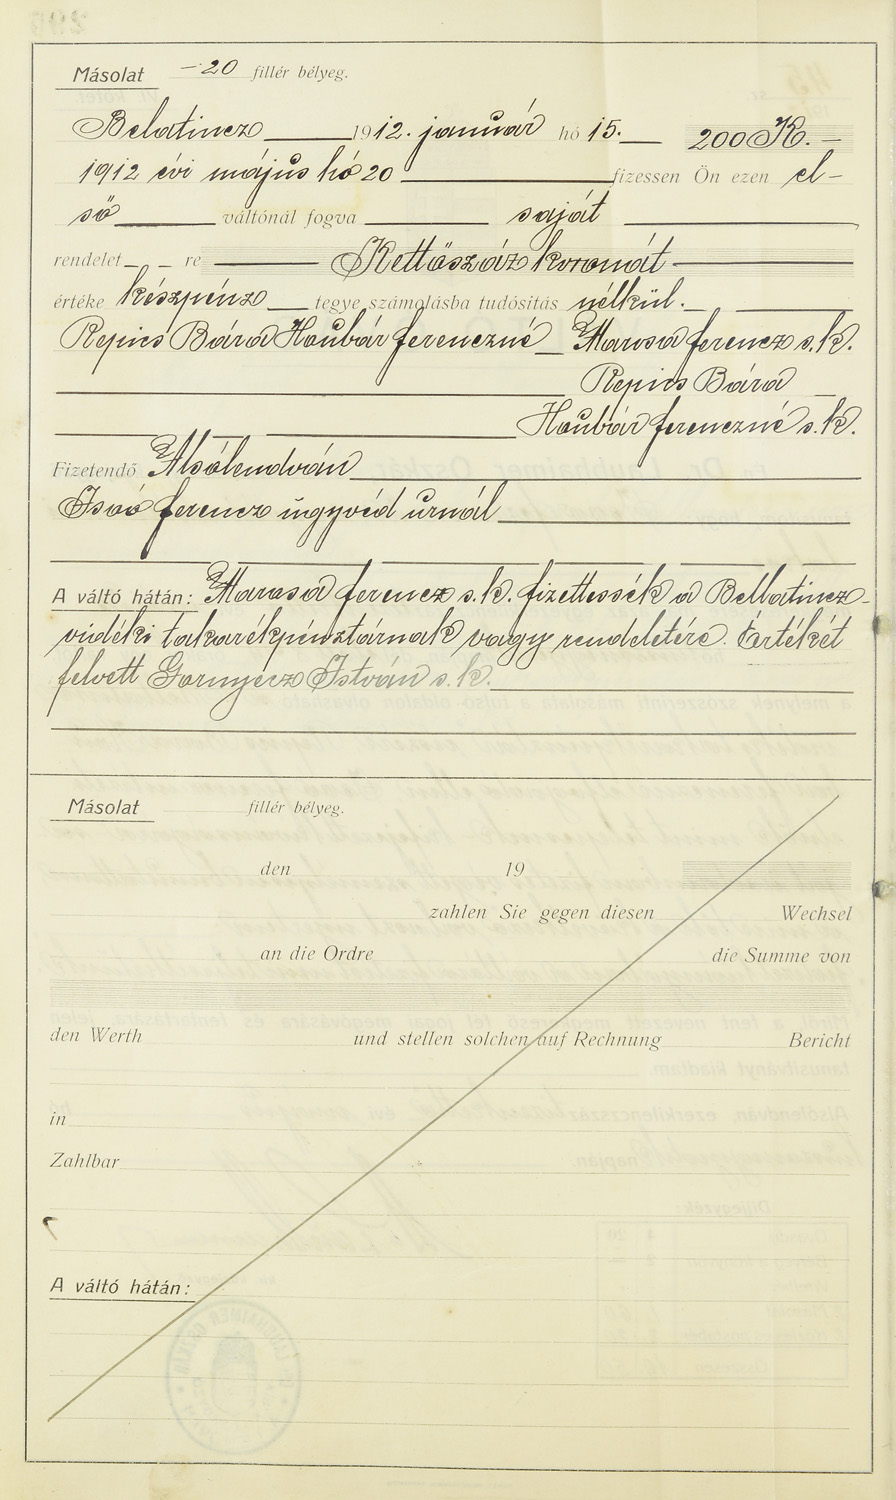 Másolat —20 fillér bélyeg.
Belatincz 1912. január hó 15. 200 K.—
1912 évi május hó 20 fizessen Ön ezen el-
ső váltónál fogva saját
rendelet — re Kettőszáz koronát
értéke készpénz tegye számolásba tudósítás nélkül.
Repics Bára Houbár ferenczné Marosa ferencz s.k.
Repics Bára
Houbár ferenczné s.k.
Fizetendő Alsólendván
Isoó ferencz ügyvéd urnál
A váltó hátán: Marosa ferencz s.k. fizettessék a Bellatincz-
vidéki takarékpénztárnak vagy rendeletére. Értékét
felvett Gornyecz István s.k.
Másolat fillér bélyeg.
den 19
zahlen Sie gegen diesen Wechsel
an die Ordre die Summe von
den Werth und stellen solchen auf Rechnung Bericht
in
Zahlbar
A váltó hátán: